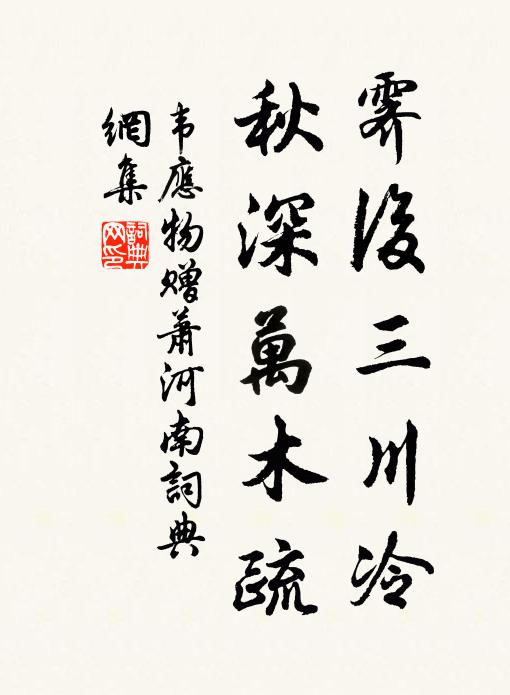 霽後三川冷
秋深萬木疏
韦應物贈蕭河南詞典
網集
詞典网印